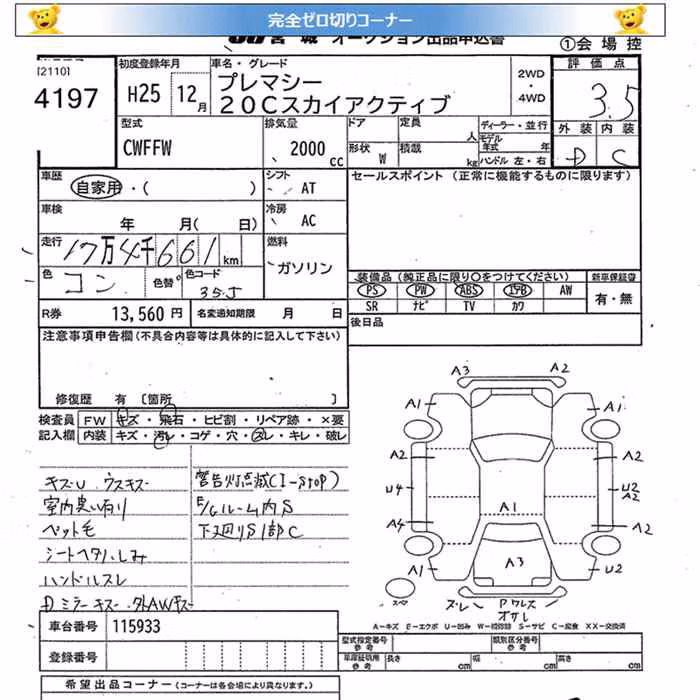 完全ゼロ切りコーナー
JU宮城 オークション出品申込書
①会場控
[2110]
4197
初度登録年月
H25 12月
車名・グレード
プレマシー
20Cスカイアクティブ
2WD
・
4WD
評価点
3.5
外装 内装
D C
型式
CWFFW
排気量
2000 cc
ドア 定員 人
形状 W 積載 kg
ディーラー・並行
モデル年式 年
ハンドル 左・右
車歴
自家用・( )
シフト
AT
セールスポイント (正常に機能するものに限ります)
車検
年 月( 日)
冷房
AC
走行
17万4千661km
燃料
ガソリン
色
コン
色替
色コード
35J
装備品 (純正品に限り○をつけてください)
新車保証書
PS PW ABS エアB AW
有・無
SR ナビ TV カワ
R券 13,560円 名変通知期限 月 日
後日品
注意事項申告欄(不具合内容等は具体的に記入して下さい)
修復歴 有 [箇所 ]
検査員 FW キズ・飛石・ヒビ割・リペア跡・×要
記入欄 内装 キズ・汚レ・コゲ・穴・スレ・キレ・破レ
キズU ウスキズ
室内臭い有り
ペット毛
シートヘタリ、しみ
ハンドルスレ
Dミラーキズ 外AWキズ
警告灯点滅(I-STOP)
E/Gルーム内S
下廻りS1部C
A3 A2
A1 A1
A2 A2
U4 U2
A2
A1
A4 A2
A3
A1 U2
スペア
ズレ Pウレス
オサレ
A-キズ E-エクボ U-凹み W-補修跡 S-サビ C-腐食 XX-交換済
車台番号 115933
登録番号
型式指定番号 参考
類別区分番号 参考
車庫証明用 参考 長さ cm 幅 cm 高さ cm
希望出品コーナー (コーナーは各会場により異なります。)